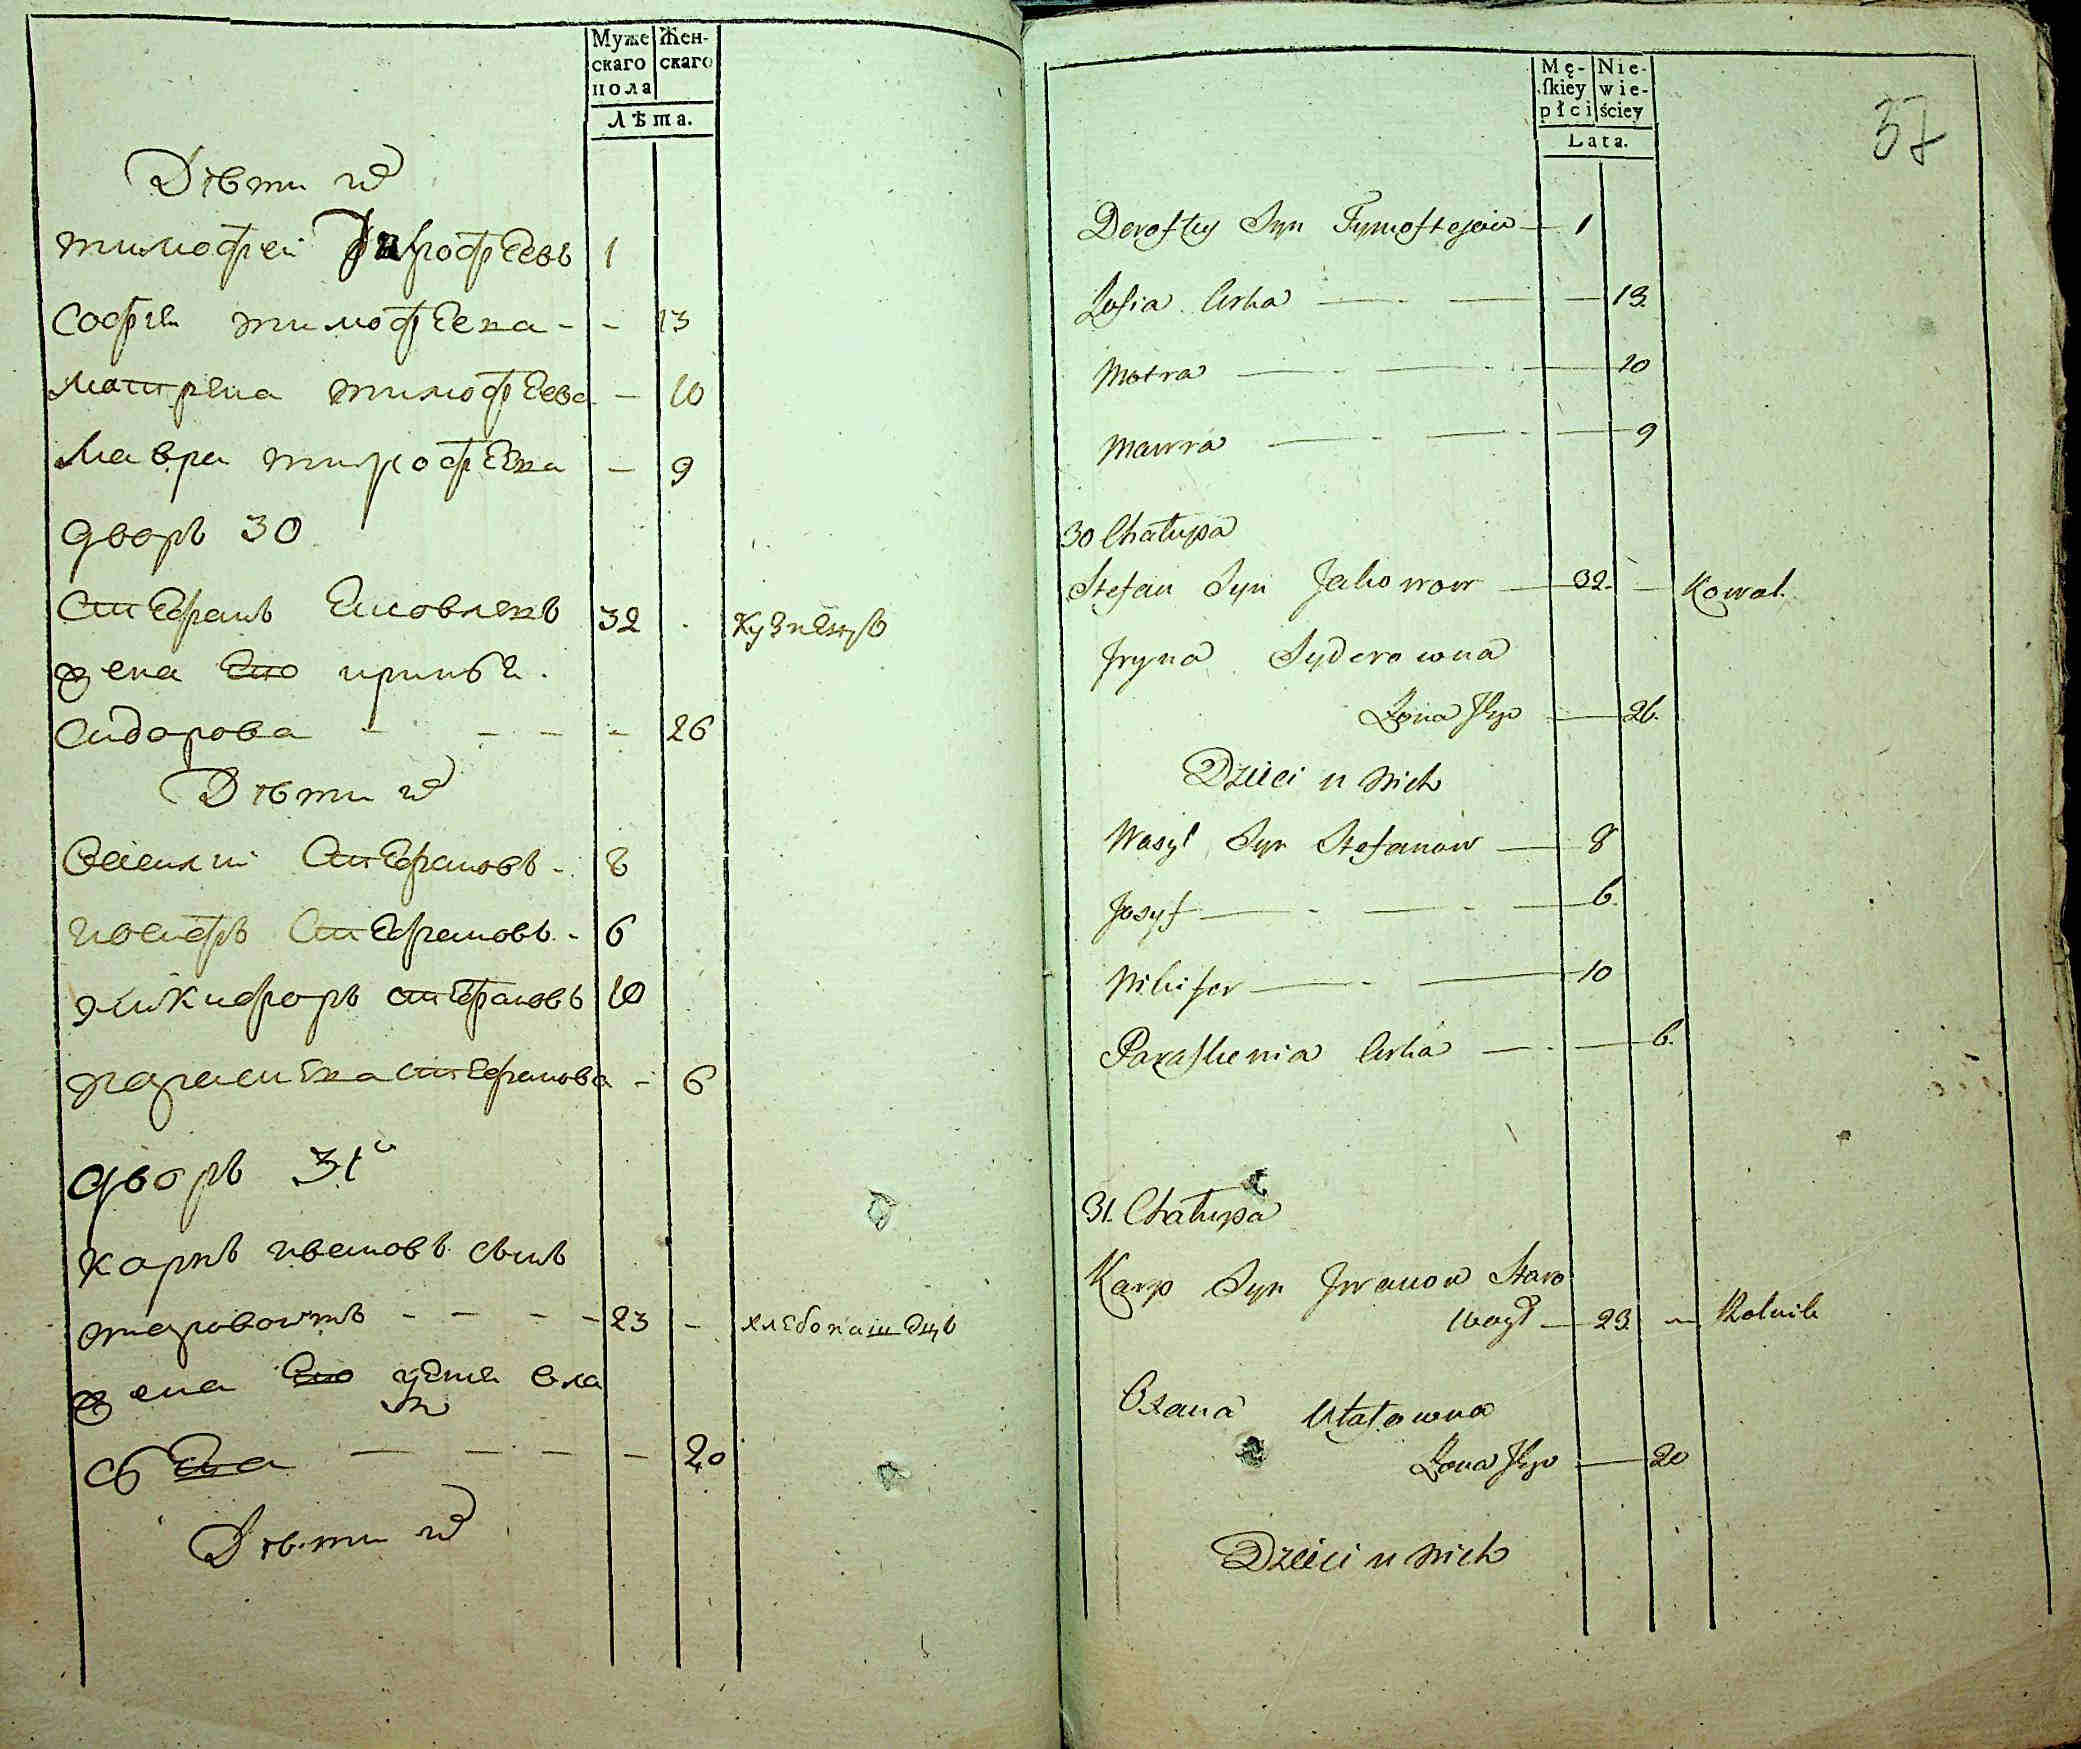 Муже
скаго
пола
Жен-
скаго
Лѣта.
Дѣти их
тимофеи
софия тимофеева - - 13
матрена тимофеева - 10
Мавра тимофеева - 9
дворъ 30
Степанъ Яковлевъ 32 кузнецъ
жена Его
Сидорова - - - - 26
Дѣти их
Степановъ - 8
Степановъ - 6
Никифоръ степановъ 10
степанова - 6
дворъ 31й
Карпъ ивановъ сынъ
- - - - 23 - хлебопашецъ
жена Его
- - - - 20
Дѣти их
37
Mę-
skiey
płci
Nie-
wie-
ściey
Lata.
Syn Tymofiejow — 1
Zofia Corka — — — 13.
Motra — — — 10
Mawra — — — 9
30 Chałupa
Stefan Syn Jakowow — 32. — Kowal.
Iryna Syderowna
Zona Jego — 26.
Dzieci u nich
Wasyl Syn Stefanow — 8
Josyf — — — 6.
Nikifor — — 10
Paraskewia Corka — — 6.
31. Chałupa
Karp Syn Iwanow Staro
— 23. — Rolnik
Oxana Własowna
Zona Jego — 20
Dzieci u nich